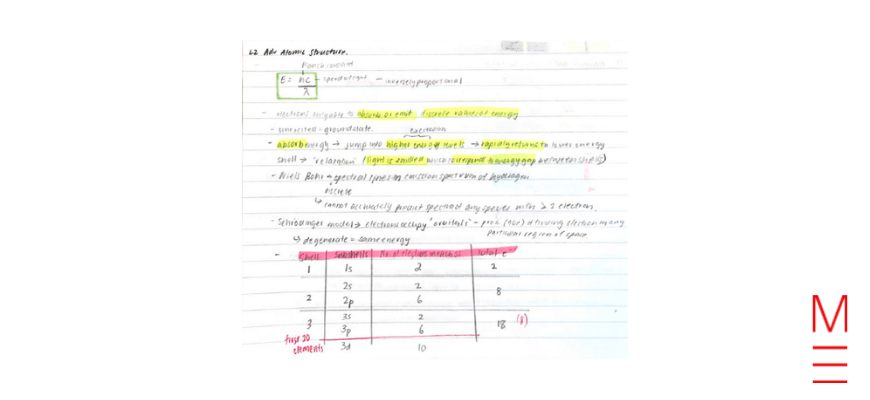 L2 Adv Atomic Structure.
Planck constant
E = hc/λ - speed of light - inversely proportional
- electrons only able to absorb or emit discrete values of energy
- unexcited - ground state. excitation
- absorb energy → jump into higher energy levels → rapidly returns to lower energy
shell → 'relaxation' (light is emitted which corresponds to energy gap between shells)
- Niels Bohr → spectral lines in emission spectrum of hydrogen
discrete
↳ cannot accurately predict spectra of any species with > 1 electron.
- Schrodinger model → electrons occupy 'orbitals' - prob (90%) of finding electron in any
particular region of space
↳ degenerate = same energy
- Shell Subshells No. of electrons in subshell total e⁻
1 1s 2 2
2s 2
2 2p 6 8
3s 2
3 3p 6 18 (8)
first 20
elements 3d 10
M